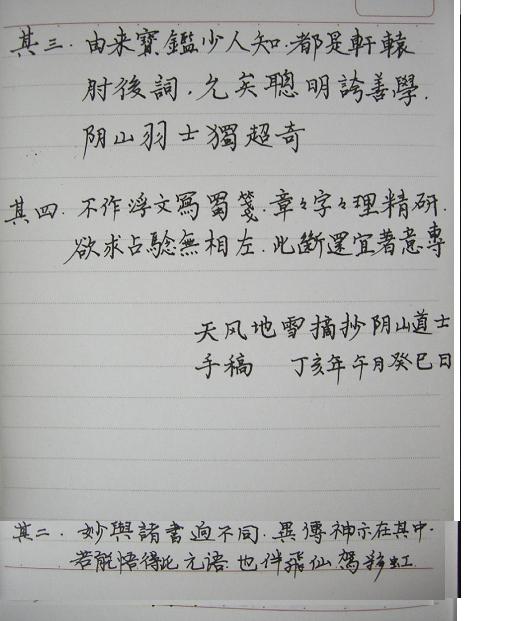 其三.由来寶鑑少人知.都是軒轅
肘後詞.允矣聰明誇善學.
阴山羽士獨超奇
其四.不作浮文寫蜀箋.章々字々理精研.
欲求占驗無相左.此斷還宜著意專
天风地雪摘抄阴山道士
手稿 丁亥年午月癸巳日
其二.妙與諸書迥不同.異傳神示在其中.
若能悟得此元语.也伴飛仙駕彩虹.